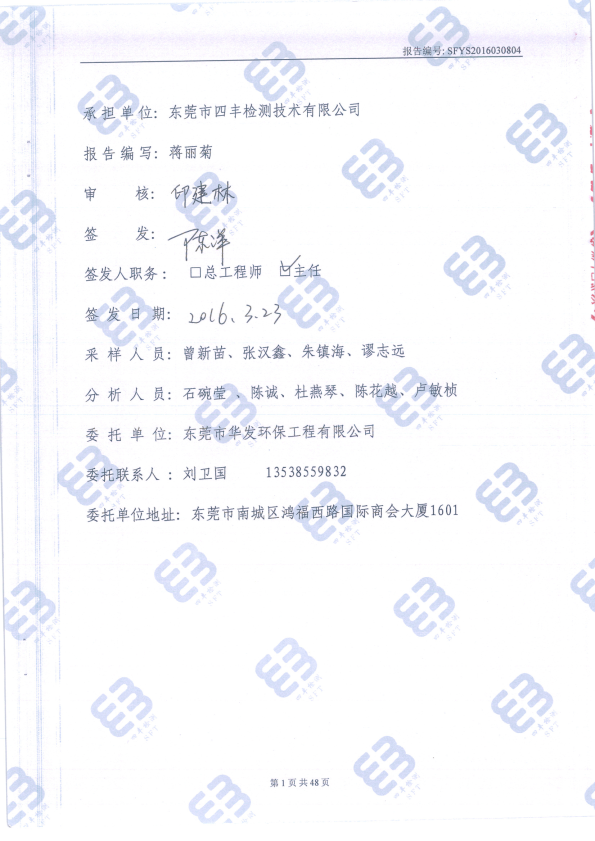 报告编号: SFYS2016030804
承担单位: 东莞市四丰检测技术有限公司
报告编写: 蒋丽菊
审 核: 印建林
签 发: 陈洋
签发人职务: □总工程师 ☑主任
签发日期: 2016.3.23
采样人员: 曾新苗、张汉鑫、朱镇海、谬志远
分析人员: 石碗莹、陈诚、杜燕琴、陈花越、卢敏桢
委托单位: 东莞市华发环保工程有限公司
委托联系人: 刘卫国 13538559832
委托单位地址: 东莞市南城区鸿福西路国际商会大厦1601
第 1 页 共 48 页